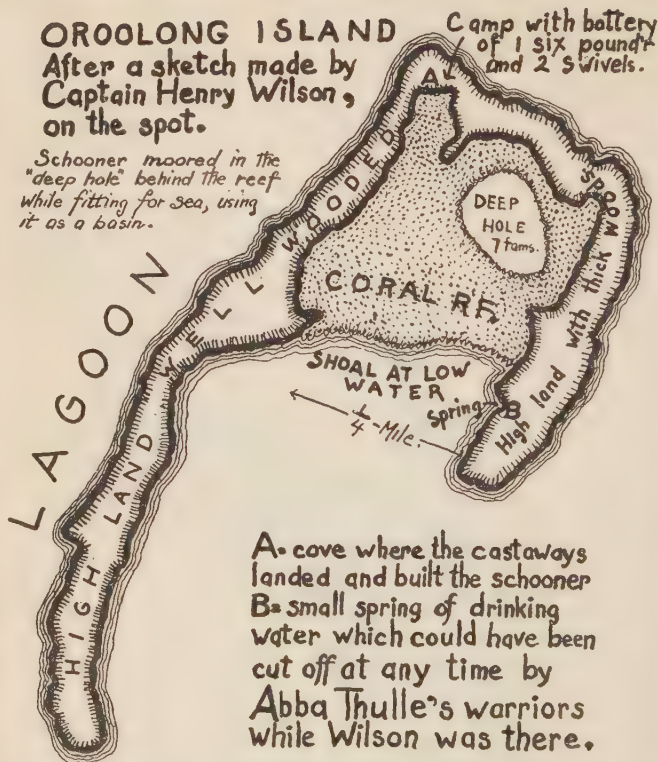 OROOLONG ISLAND
After a sketch made by
Captain Henry Wilson,
on the spot.
Schooner moored in the
"deep hole" behind the reef
while fitting for sea, using
it as a basin.
Camp with battery
of 1 six pound'r
and 2 swivels.
A
LAGOON
HIGH LAND WELL WOODED
High land with thick woods
DEEP
HOLE
7 fams.
CORAL RF.
SHOAL AT LOW
WATER
Spring
B
1/4-Mile.
A= cove where the castaways
landed and built the schooner
B= small spring of drinking
water which could have been
cut off at any time by
Abba Thulle's warriors
while Wilson was there.